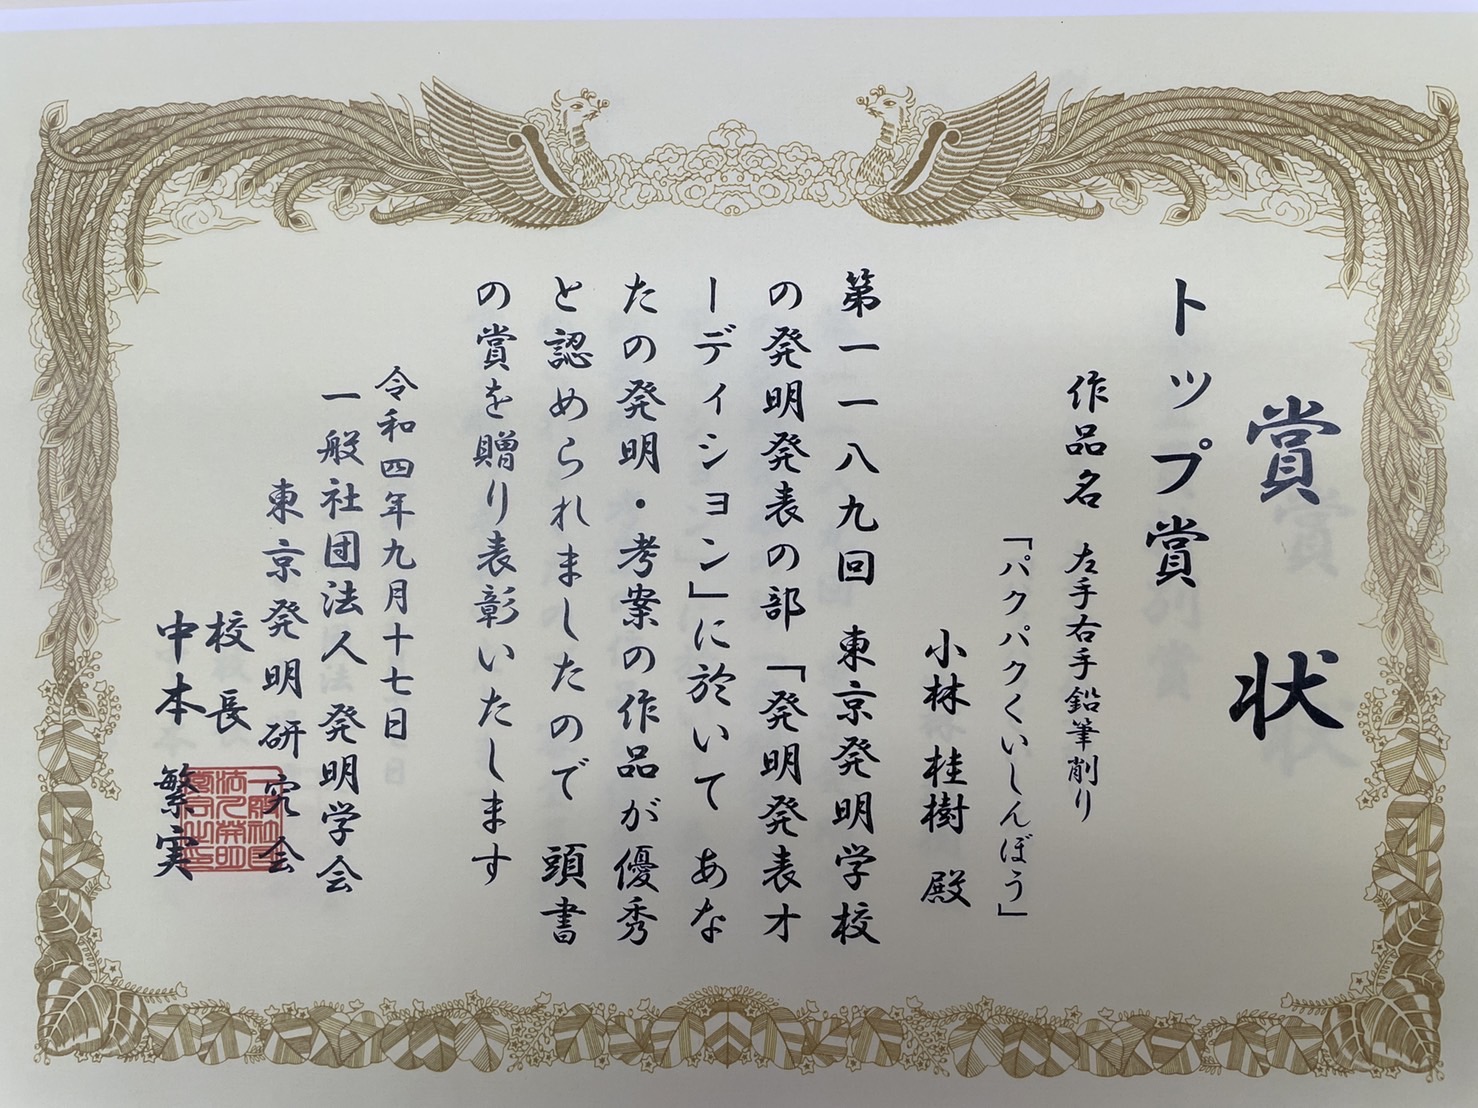 賞状
トップ賞
作品名 左手右手鉛筆削り
「パクパクくいしんぼう」
小林 桂樹 殿
第一一八九回 東京発明学校
の発明発表の部「発明発表オ
ーディション」に於いて あな
たの発明・考案の作品が優秀
と認められましたので 頭書
の賞を贈り表彰いたします
令和四年九月十七日
一般社団法人 発明学会
東京発明研究会
校長
中本 繁実